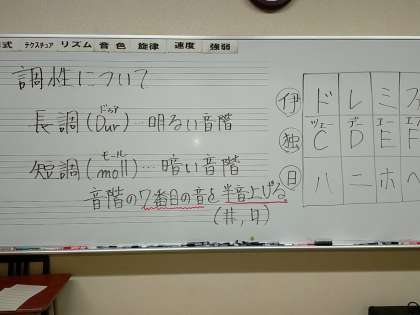 式 テクスチュア リズム 音色 旋律 速度 強弱
調性について
長調(Dur)…明るい音階
ドゥア
短調(moll)…暗い音階
モール
音階の7番目の音を半音上げる
(♯,♮)
伊 ド レ ミ フ
独 C D E F
ツェー デー エー エフ
日 ハ ニ ホ ヘ